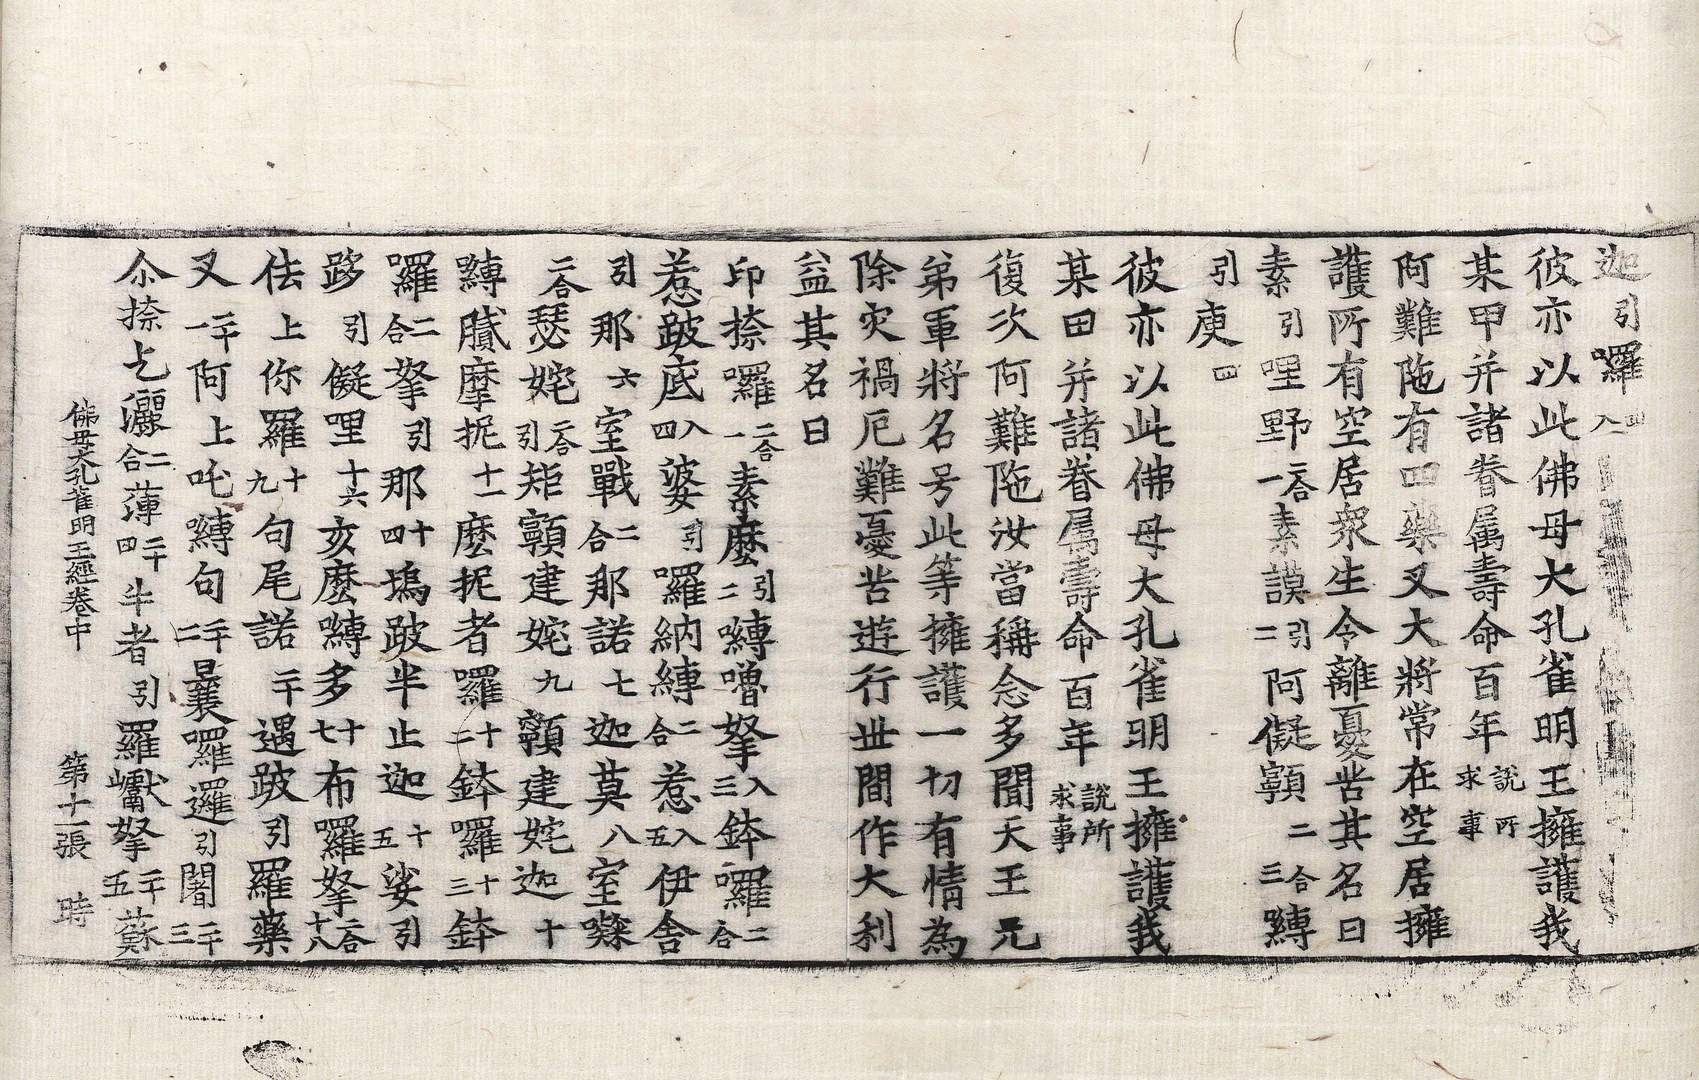 迦引囉四入
彼亦以此佛母大孔雀明王擁護我
某甲并諸眷属壽命百年說所求事
阿難陁有四藥叉大將常在空居擁
護所有空居衆生令離憂苦其名曰
素引哩野二合一素謨引二阿儗顐二合三嚩
引庾四
彼亦以此佛母大孔雀明王擁護我
某田并諸眷属壽命百年說所求事
復次阿難陁汝當稱念多聞天王兄
弟軍將名号此等擁護一切有情為
除灾禍厄難憂苦遊行世間作大利
益其名曰
印捺囉二合一素麽引二嚩嚕拏入三鉢囉二合
惹跛底入四婆引囉納嚩二合惹入五伊舍
引那六室戰二合那諾七迦莫八室㘑
二合瑟姹二合引矩顐建姹九顐建姹迦十
嚩膩摩抳十一麽抳者囉十二鉢囉十三鉢
囉二合拏引那十四塢跛半止迦十五娑引
跢引儗哩十六亥麽嚩多十七布囉拏二合十八
佉上你羅十九句尾諾二十遇跛引羅藥
叉二十一阿上吒嚩句二十二曩囉邏引闍二十三
尒捺乞灑二合薄二十四半者引羅巘拏二十五蘇
佛母大孔雀明王經卷中 第十一張 時